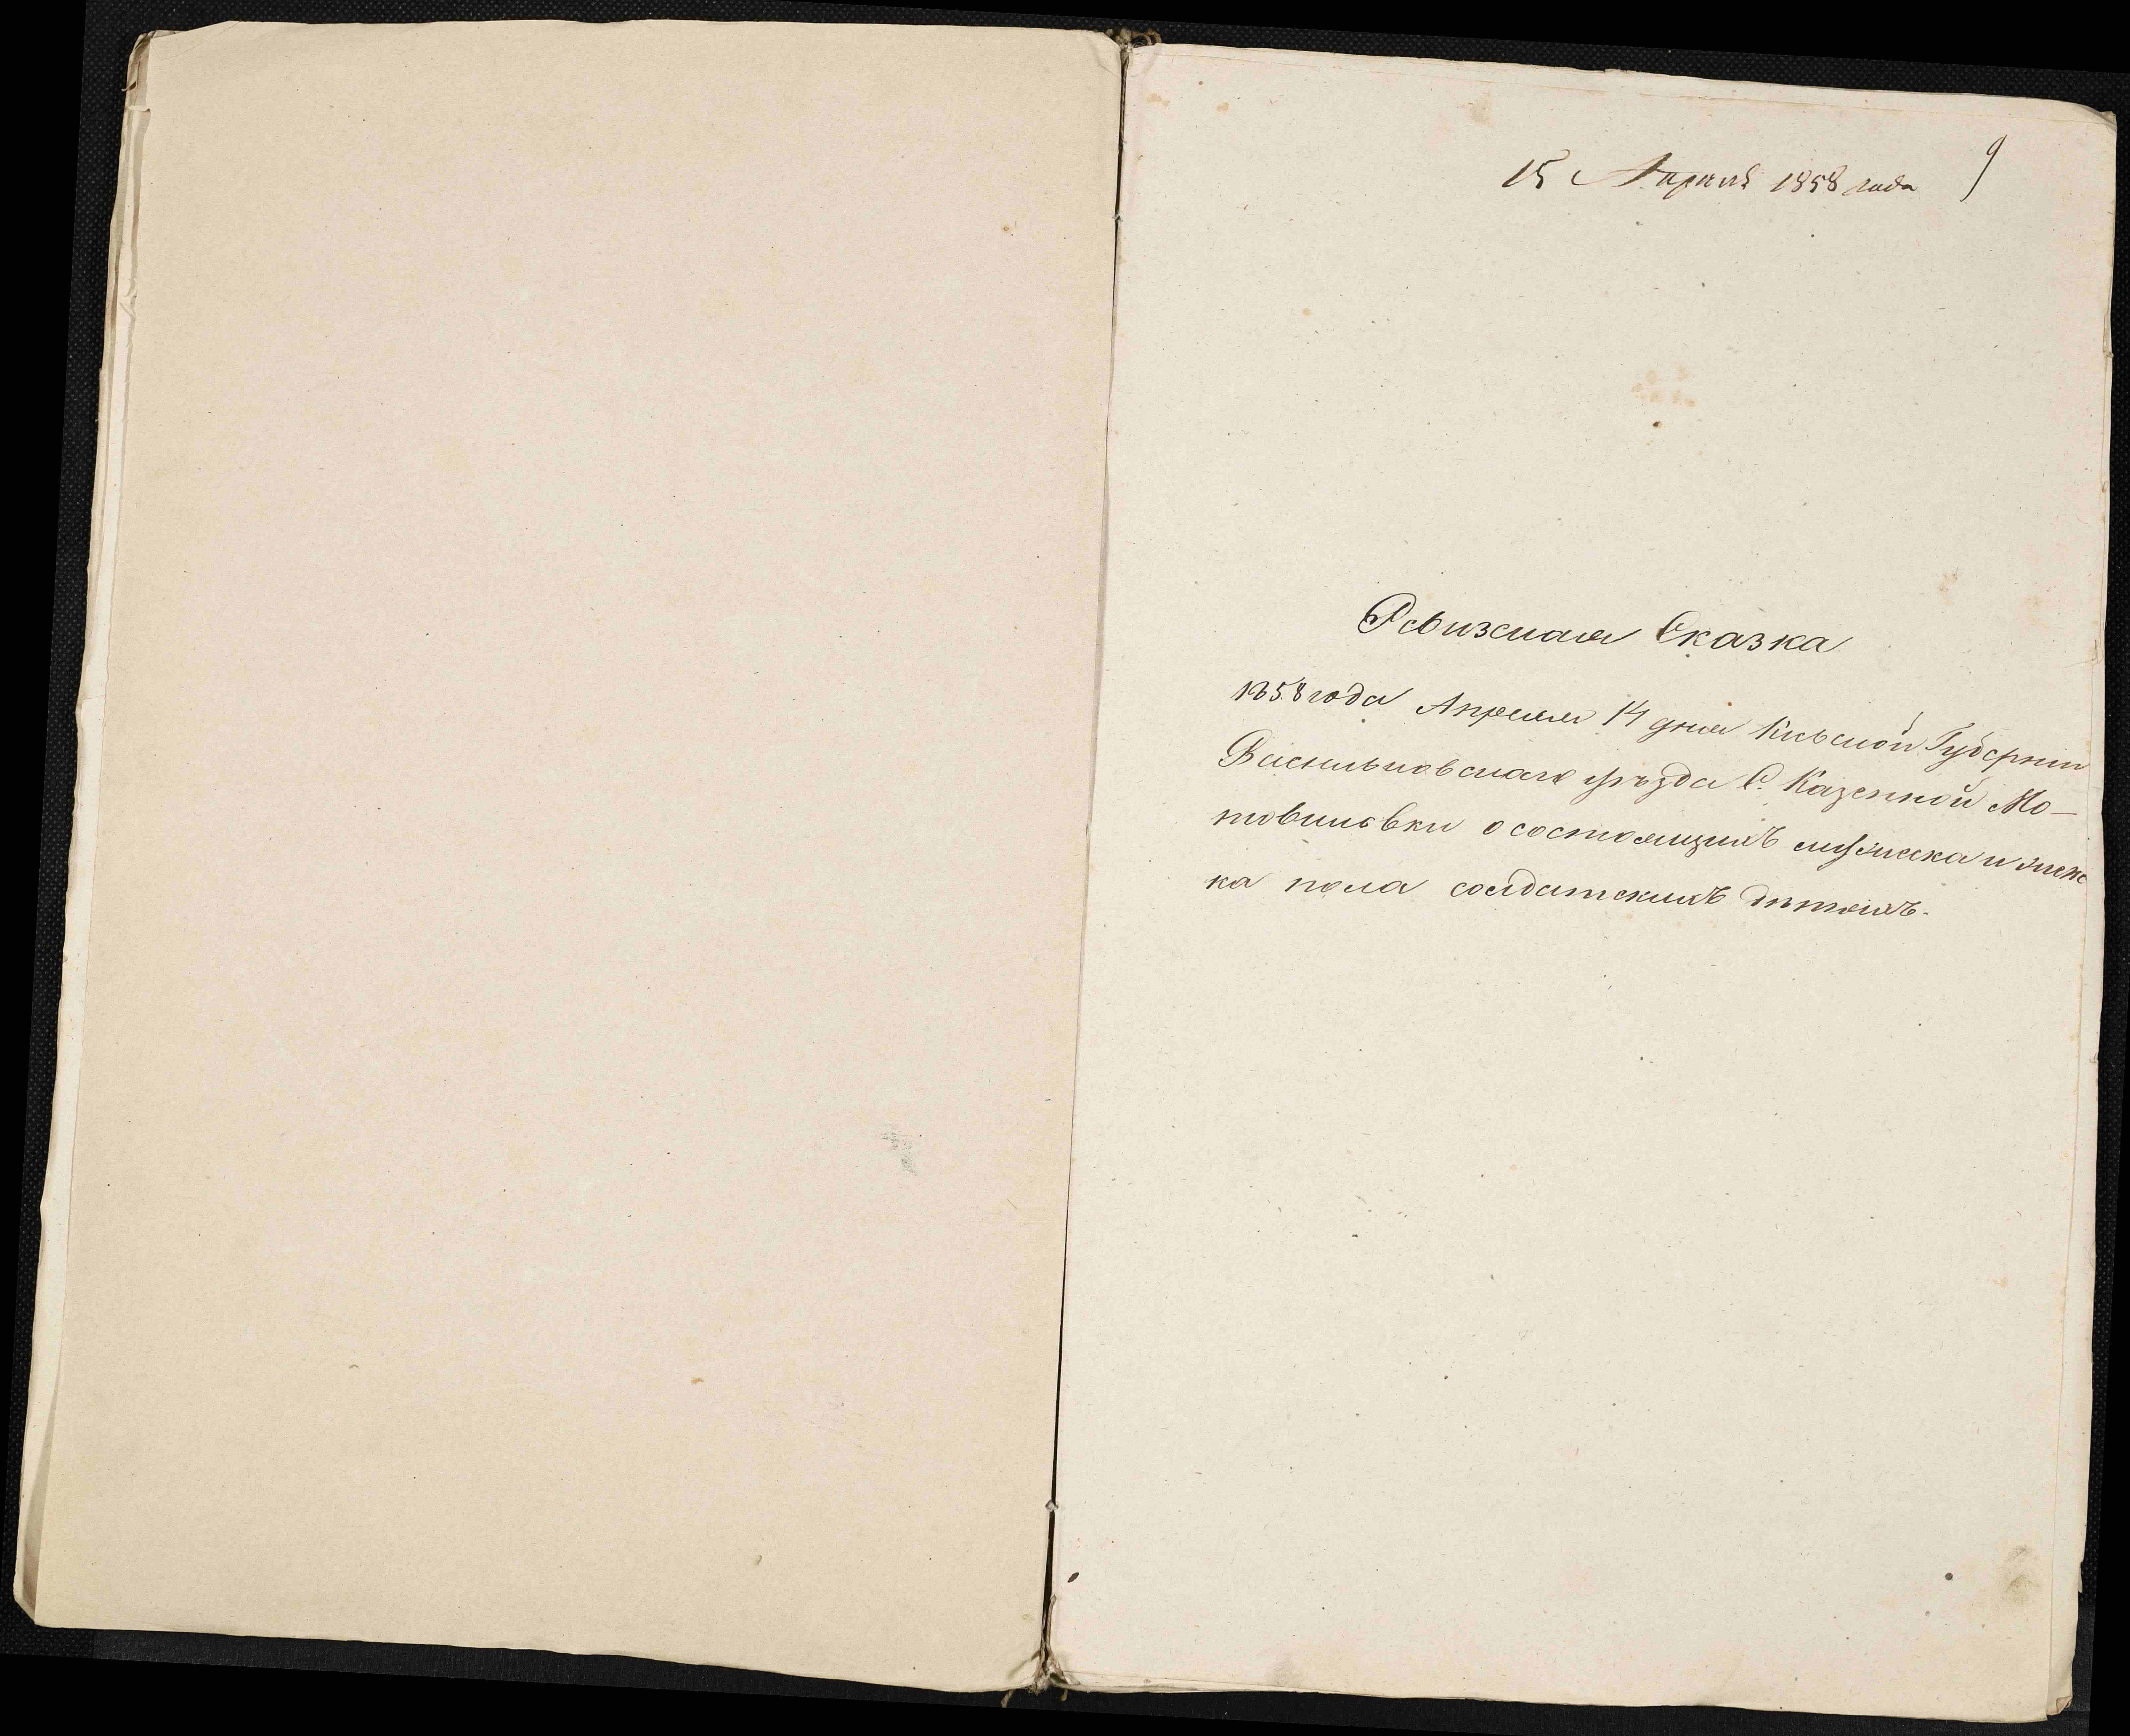 15 Апрѣля 1858 года
9
Ревизская Сказка
1858 года Апреля 14 дня Киевской Губернии
Васильковскаго уѣзда С. Казенной Мо-
товиловки о состоящихъ мужеска и женс
ка пола солдатскихъ дѣтяхъ.